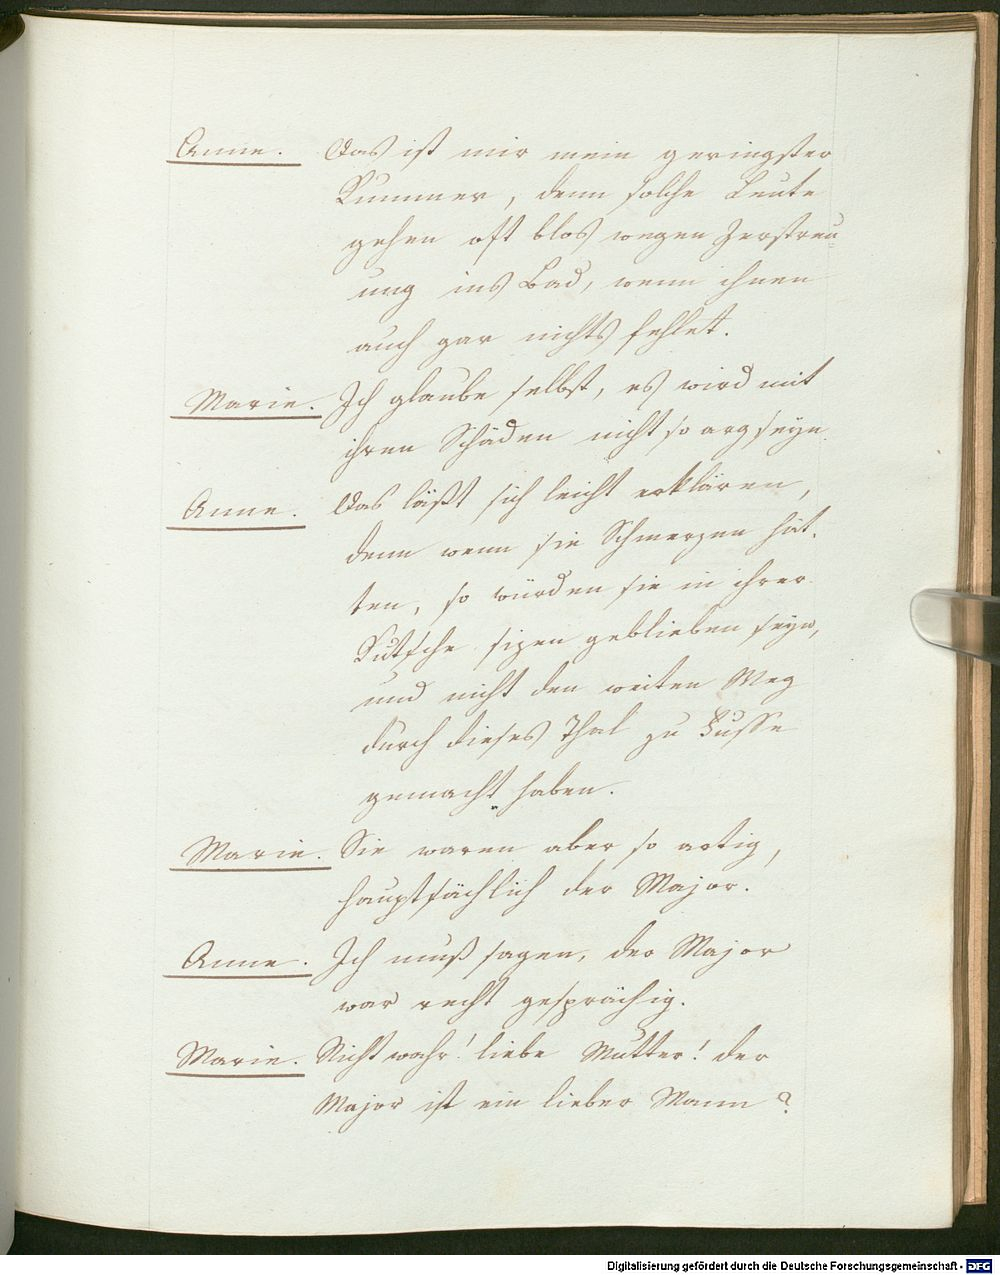 Anne. Das ist mir mein geringster
Kummer, denn solche Leute
gehen oft blos wegen Zerstreu=
ung ins Bad, wenn ihnen
auch gar nichts fehlet.
Marie. Ich glaube selbst, es wird mit
ihren Schäden nicht so arg seyn.
Anne. Das läßt sich leicht erklären,
denn wenn sie Schmerzen hät=
ten, so würden sie in ihrer
Kutsche sizen geblieben seyn,
und nicht den weiten Weg
durch dieses Thal zu Fusse
gemacht haben.
Marie. Sie waren aber so artig,
hauptsächlich der Major.
Anne. Ich muß sagen, der Major
war recht gesprächig.
Marie. Nicht wahr! liebe Mutter! der
Major ist ein lieber Mann?
Digitalisierung gefördert durch die Deutsche Forschungsgemeinschaft - DFG